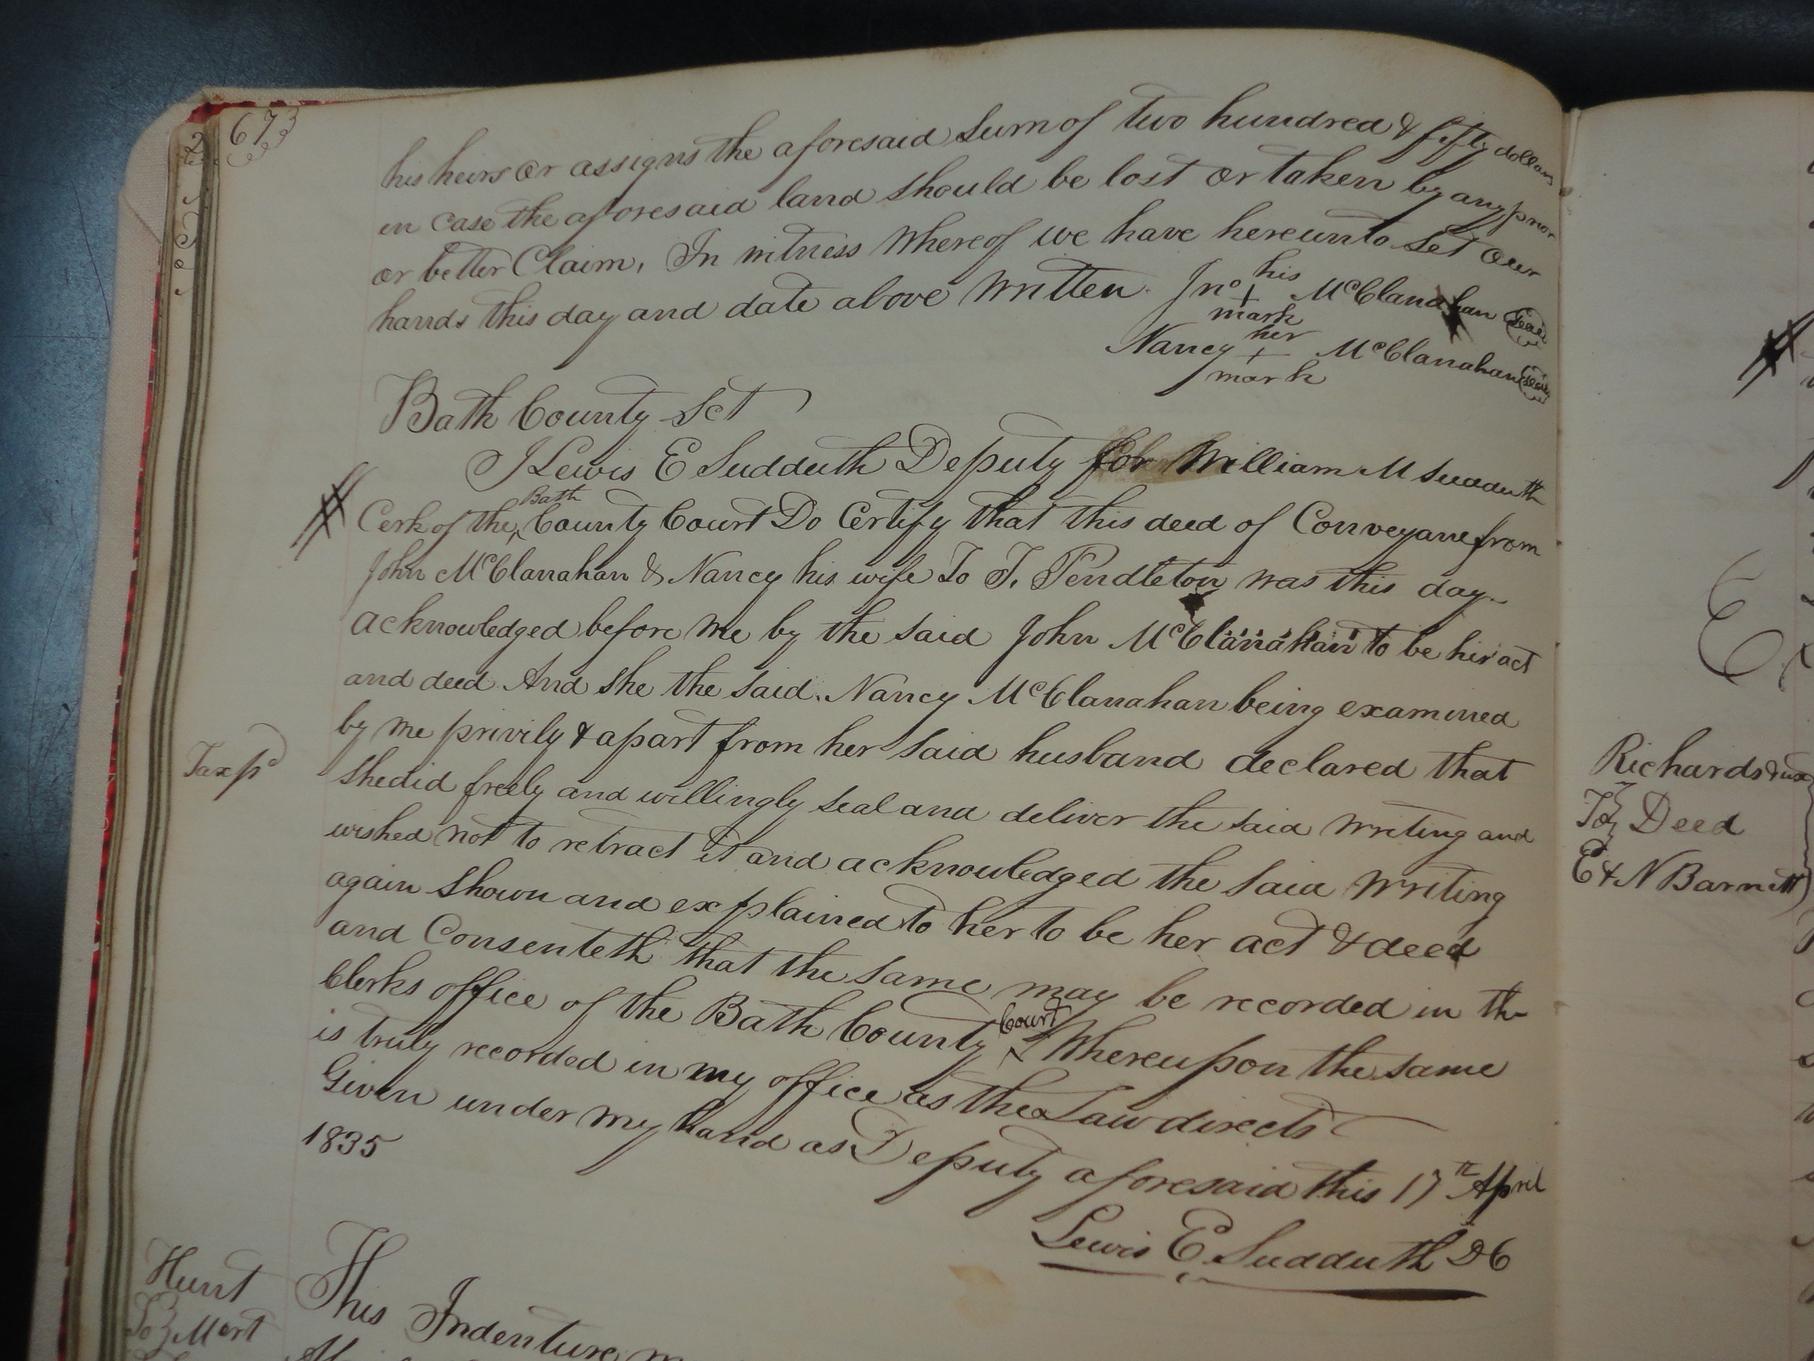 673
his heirs or assigns the aforesaid Sum of two hundred & fifty dollars
in case the aforesaid land should be lost or taken by any prior
or better Claim. In witness whereof we have hereunto Set our
hands this day and date above Written. Jno his + mark McClanahan Seal
Nancy her + mark McClanahan Seal
Bath County Sct
I Lewis E Sudduth Deputy for William M Sudduth
Cerk of the Bath County Court Do Certify that this deed of Conveyane from
John McClanahan & Nancy his wife To T. Pendleton was this day
acknowledged before me by the said John McClanahan to be his act
and deed And she the said Nancy McClanahan being examined
by me privily & apart from her Said husband declared that
Tax pd
She did freely and willingly seal and deliver the said writing and
wished not to retract it and acknowledged the said writing
again Shown and explained to her to be her act & deed
and Consenteth that the same may be recorded in the
Clerks office of the Bath County Court Whereupon the same
is truly recorded in my office as the Law directs
Given under my hand as Deputy aforesaid this 17th April
1835
Lewis E Sudduth DC
Hunt
To Mort
This Indenture
Richards & ux
To Deed
E & N Barnett